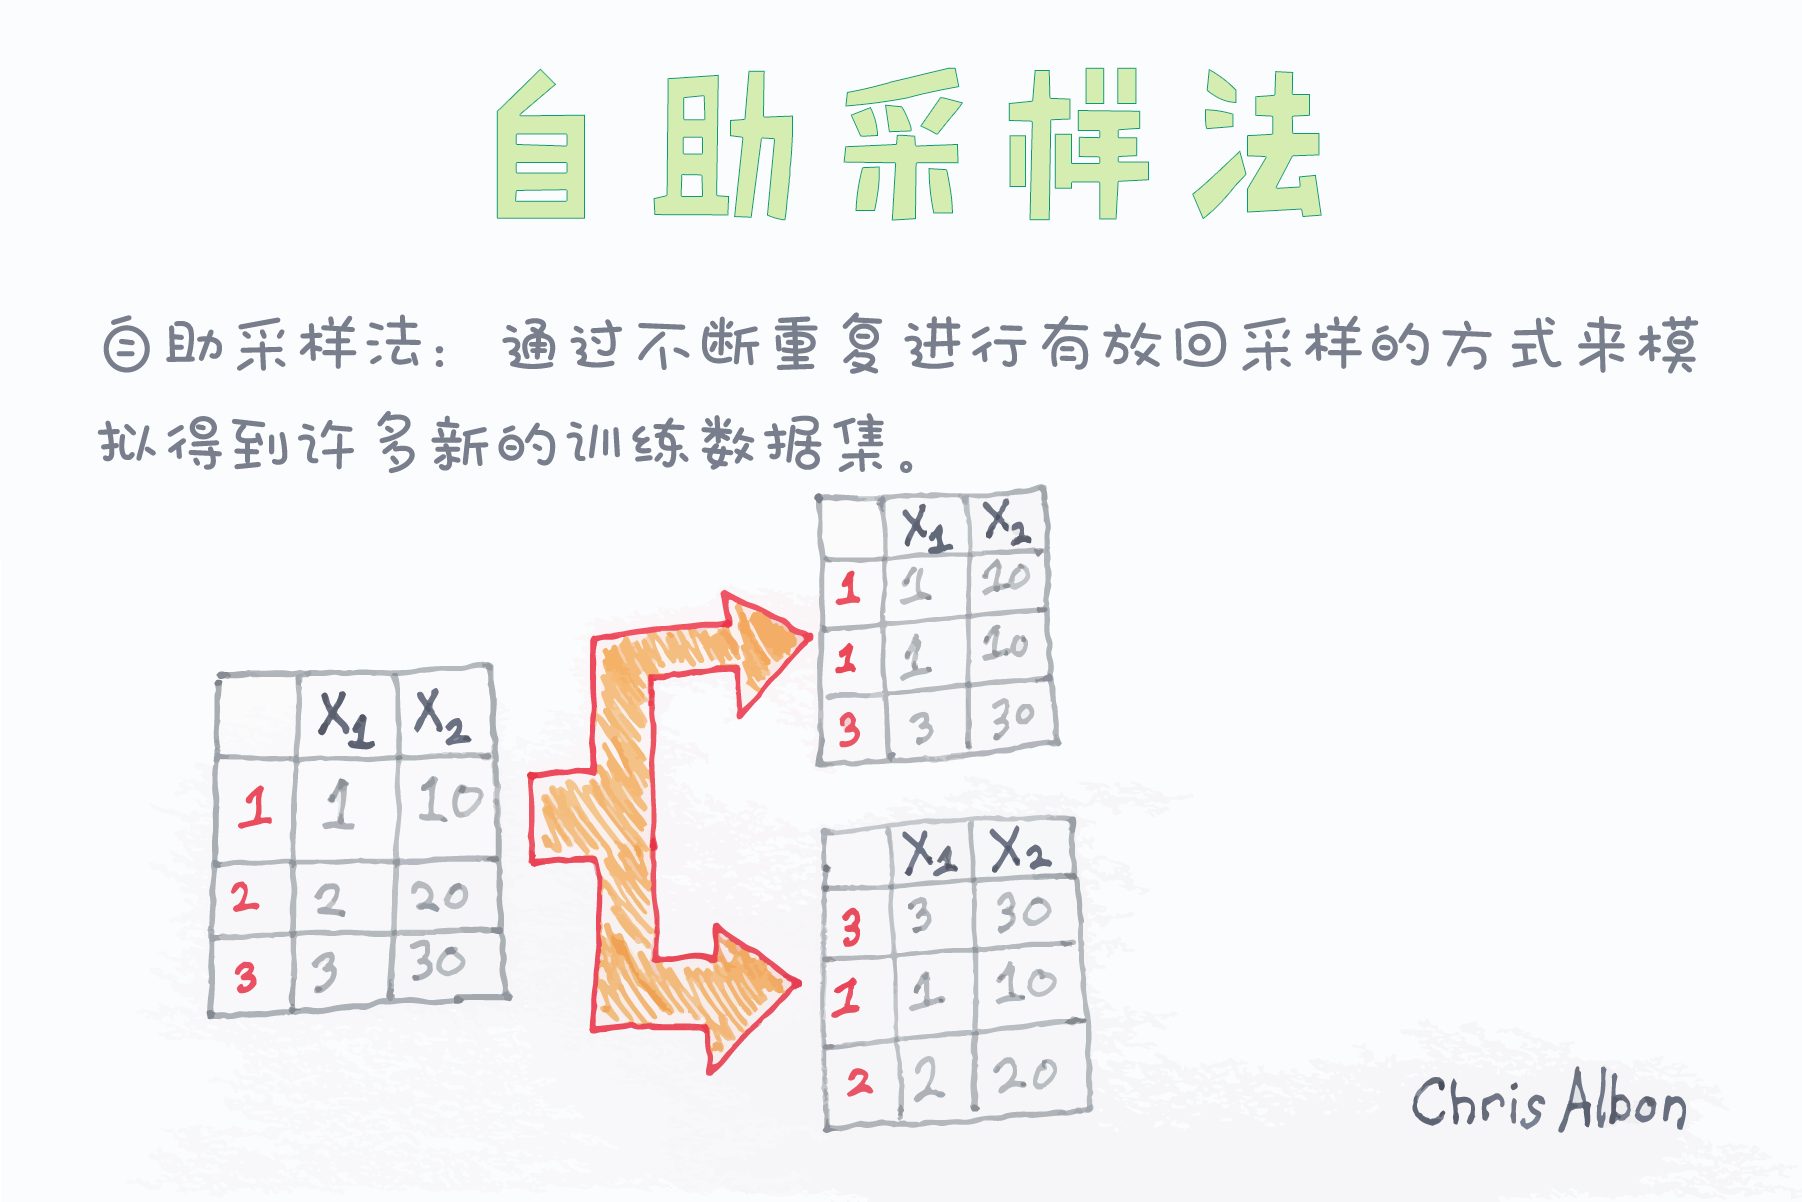 自助采样法
自助采样法：通过不断重复进行有放回采样的方式来模
拟得到许多新的训练数据集。
X1 X2
1 1 10
1 1 10
3 3 30
X1 X2
1 1 10
2 2 20
3 3 30
X1 X2
3 3 30
1 1 10
2 2 20
Chris Albon